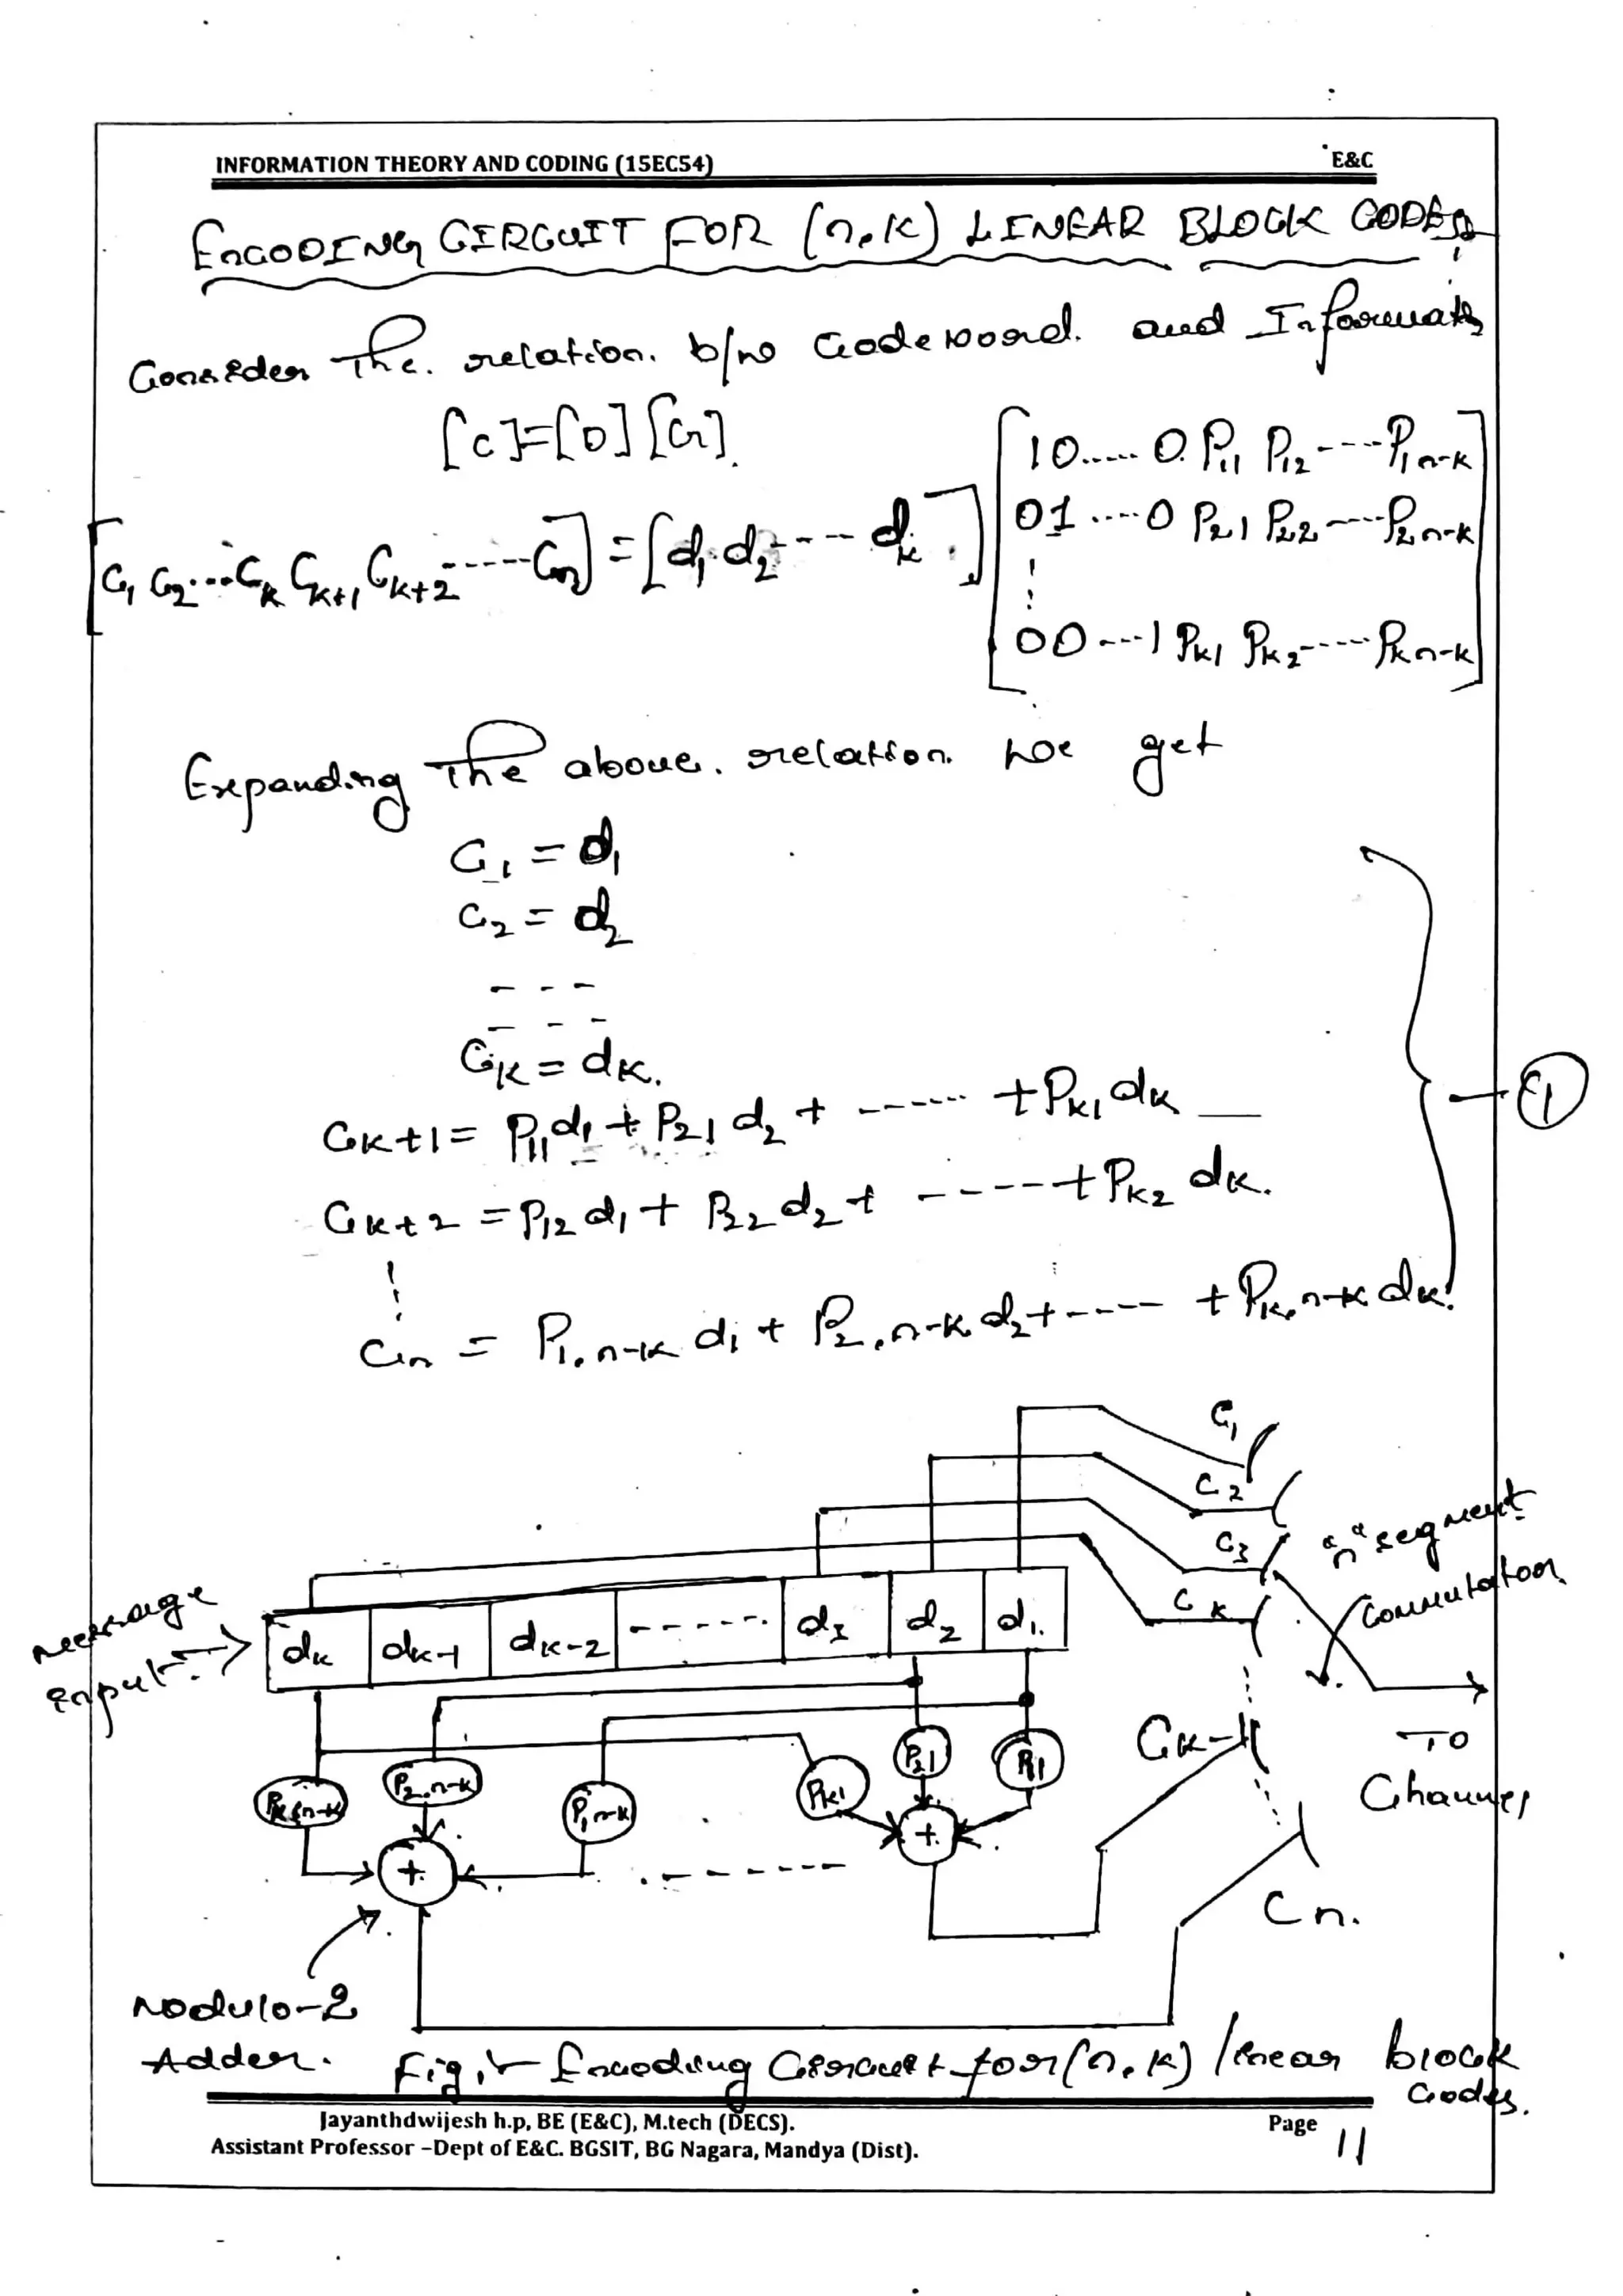 INFORMATION THEORY AND CODING (15EC54) E&C
ENCODING CIRCUIT FOR (n,k) LINEAR BLOCK CODES
Consider The relation b/w Codeword and Information
[C]=[D][G]
[C1 C2 ... Ck Ck+1 Ck+2 ----- Cn] = [d1 d2 --- dk]
[10.....0 P11 P12 ---- P1 n-k
01 ....0 P21 P22 ---- P2 n-k
00 ---1 Pk1 Pk2 ----- Pk n-k]
Expanding The above relation we get
C1 = d1
C2 = d2
- - -
- - -
Ck = dk.
Ck+1 = P11 d1 + P21 d2 + ------ + Pk1 dk
Ck+2 = P12 d1 + P22 d2 + ----- + Pk2 dk.
Cn = P1,n-k d1 + P2,n-k d2 + ---- + Pk,n-k dk.
1
C1
C2
C3
Ck
"n" segment
Commutator
message
input
dk dk-1 dk-2 ------ d3 d2 d1.
Pk,n-k P2,n-k P1,n-k Pk1 P21 P11
+ +
Ck+1
To
Channel
Cn.
Modulo-2
Adder.
Fig :- Encoding Circuit for (n,k) linear block
Codes.
Jayanthdwijesh h.p, BE (E&C), M.tech (DECS).
Assistant Professor –Dept of E&C. BGSIT, BG Nagara, Mandya (Dist).
Page 11